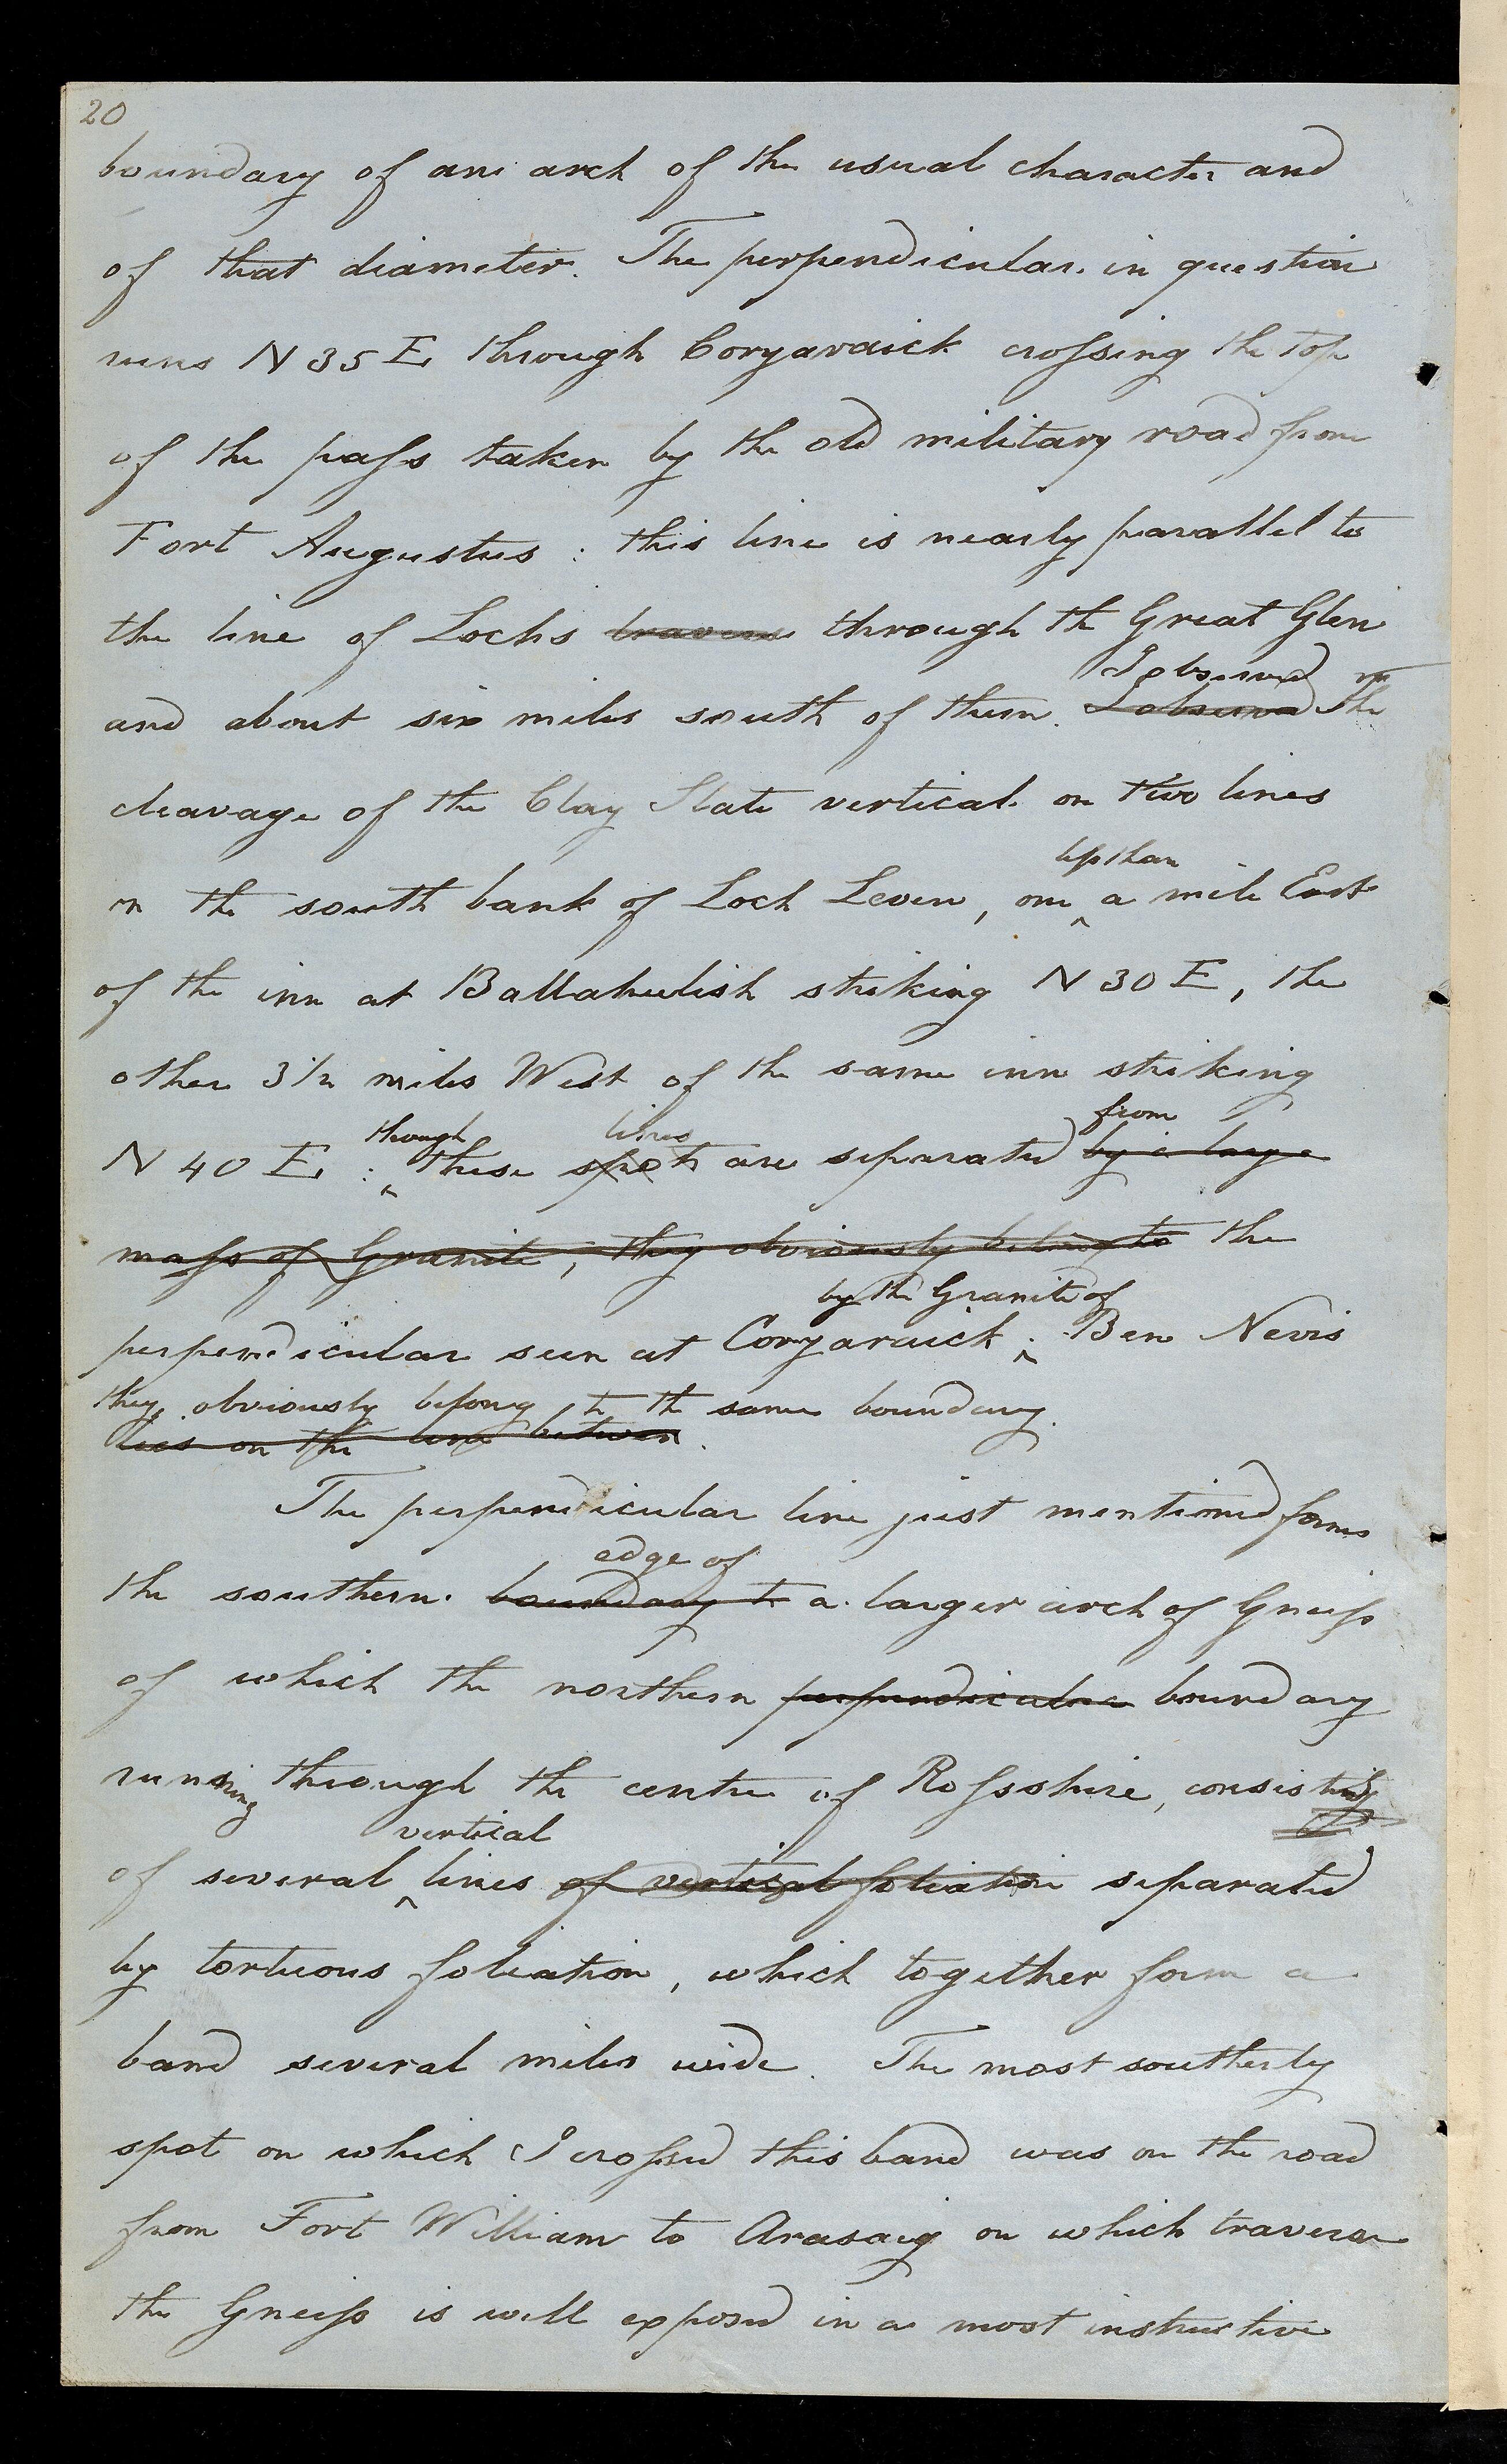 20
boundary of an arch of the usual character and
of that diameter. The perpendicular in question
runs N 35 E through Coryaraick crossing the top
of the pass taken by the old military road from
Fort Augustus : this line is nearly parallel to
the line of Lochs through the Great Glen
I observed
and about six miles south of them. I observed The
cleavage of the Clay Slate vertical on two lines
less than
on the south bank of Loch Leven, one a mile East
of the inn at Ballahulish striking N 30 E, the
other 3 1/2 miles West of the same inn striking
though lines from
N 40 E : these spots are separated by a large
mass of Granite, they obviously belong to the
by the Granite of
perpendicular seen at Coryaraick ; Ben Nevis
they obviously belong to the same boundary.
lies on the line between.
The perpendicular line just mentioned forms
edge of
the southern boundary to a larger arch of Gneiss
of which the northern perpendicular boundary
running through the centre of Rossshire, consisting
vertical
of several lines of vertical foliation separated
by tortuous foliation, which together form a
band several miles wide. The most southerly
spot on which I crossed this band was on the road
from Fort William to Arasaig on which traverse
the Gneiss is well exposed in a most instructive